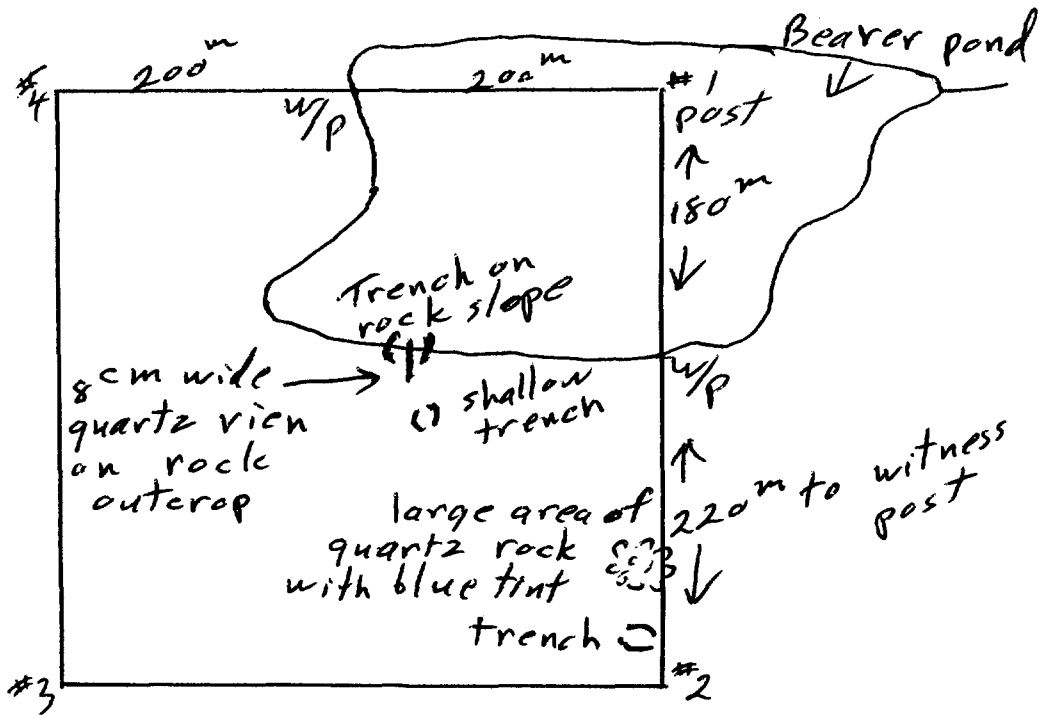 Beaver pond
200m
200m
#4
w/p
#1
post
180m
Trench on
rock slope
8cm wide
quartz vien
on rock
outcrop
shallow
trench
w/p
220m to witness
post
large area of
quartz rock
with blue tint
trench
#3
#2